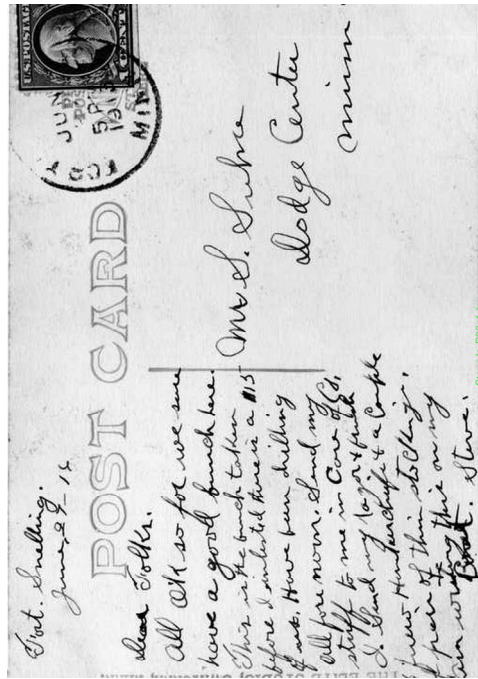 Fort. Snelling
June 29 - 16
POST CARD
Dear Folks.
All OK so far we sure
have a good bunch here.
This is the bunch taken
before I inlisted there is a 115
of us. Have been drilling
all forenoon. Send my
stuff to me in Care of Co,
I. Send my razor &
few Hankerchiefs & a Couple
of pair of thin stockings.
am writing this on my
Steve.
Mr S.
Dodge Center
Minn
U.S. POSTAGE
JUN
5 PM
MIN
THE ELITE STUDIO